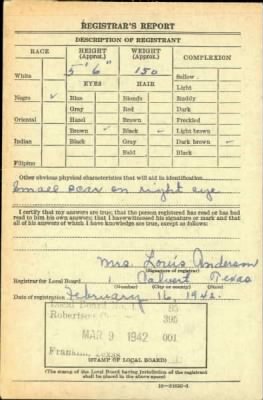 REGISTRAR'S REPORT
DESCRIPTION OF REGISTRANT
RACE HEIGHT (Approx.) WEIGHT (Approx.) COMPLEXION
5' 6" 150
White Sallow
EYES HAIR Light
Negro ✓ Blue Blonde Ruddy
Gray Red Dark
Oriental Hazel Brown Freckled
Brown ✓ Black ✓ Light brown
Indian Black Gray Dark brown ✓
Bald Black
Filipino
Other obvious physical characteristics that will aid in identification
Small scar on right eye
I certify that my answers are true; that the person registered has read or has had
read to him his own answers; that I have witnessed his signature or mark and that
all of his answers of which I have knowledge are true, except as follows:
Mrs. Louis Anderson
(Signature of registrar)
Registrar for Local Board 1 Calvert Texas
(Number) (City or county) (State)
Date of registration February 16, 1942
Local Board No. 1 95
395
MAR 9 1942 001
Texas
(STAMP OF LOCAL BOARD)
(The stamp of the Local Board having jurisdiction of the registrant
shall be placed in the above space)